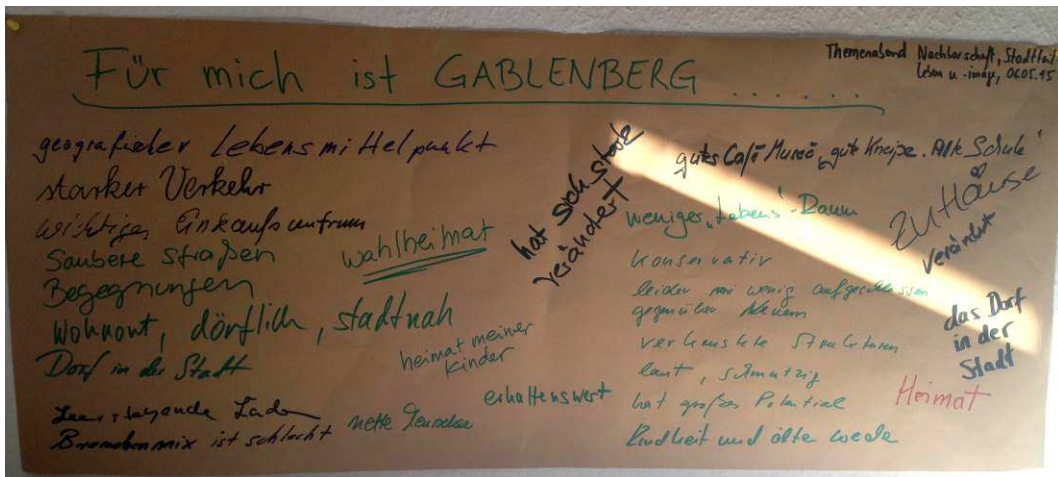 Für mich ist GABLENBERG ......
Themenabend Nachbarschaft, Stadtteil-
leben u -image, 06.05.15
geografischer Lebensmittelpunkt
starker Verkehr
wichtiges Einkaufszentrum
Saubere Straßen
Begegnungen
Wohnort, dörflich, stadtnah
Dorf in der Stadt
Leerstehende Läden
Branchenmix ist schlecht
wahlheimat
heimat meiner
Kinder
nette Menschen
erhaltenswert
hat sich stark
verändert
gutes Café Museo, gute Kneipe. Alte Schule
weniger „Lebens"-Raum
konservativ
leider wenig aufgeschlossen
gegenüber Neuem
verkrustete Strukturen
laut, schmutzig
hat großes Potential
Kindheit und älter werde
zuHause
verändert
das Dorf
in der
Stadt
Heimat